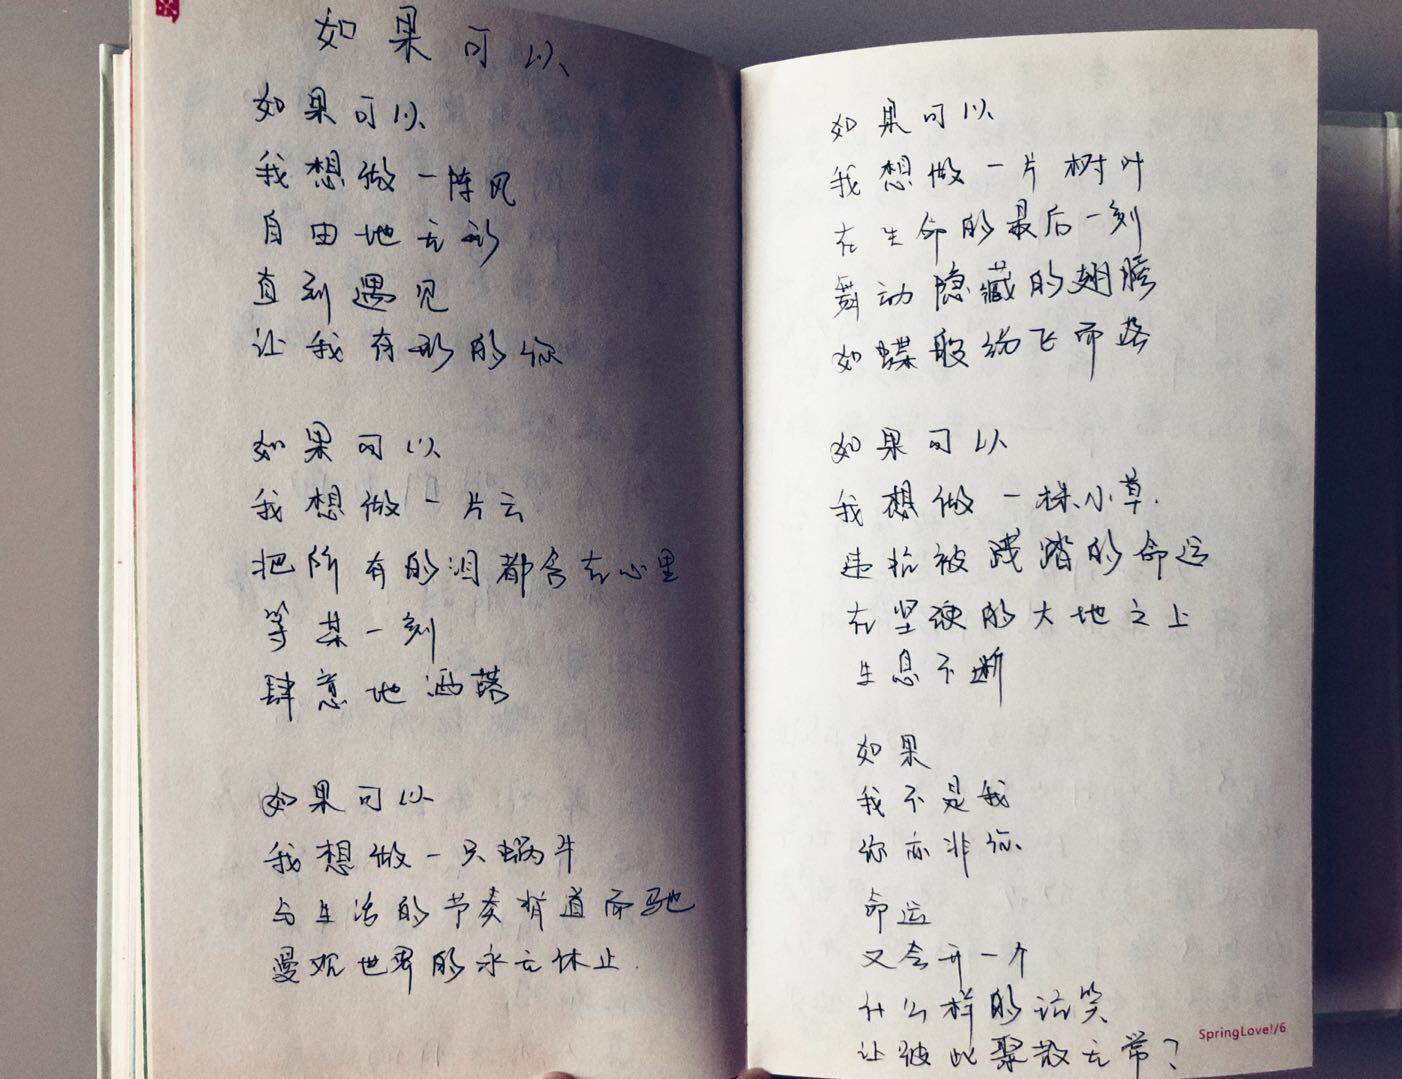 如果可以
如果可以
我想做一阵风
自由地无形
直到遇见
让我有形的你
如果可以
我想做一片云
把所有的泪都含在心里
等某一刻
肆意地洒落
如果可以
我想做一只蜗牛
与生活的节奏背道而驰
漫观世界的永无休止.
如果可以
我想做一片树叶
在生命的最后一刻
舞动隐藏的翅膀
如蝶般纷飞而落
如果可以
我想做一株小草.
违抗被践踏的命运
在坚硬的大地之上
生息不断
如果
我不是我
你亦非你
命运
又会开一个
什么样的玩笑
让彼此聚散无常?
SpringLove!/6